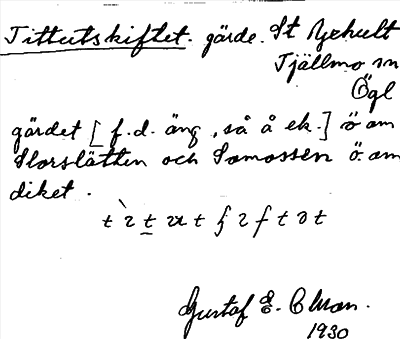 Tittutskiftet. gärde. St Yxhult
Tjällmo sn
Ögl
gärdet [ f.d. äng, så å ek.] ö om
Storslätten och Somossen ö. om
diket.
Gustaf E. Olson.
1930